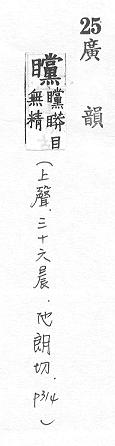 25 廣韻
矘 矘䁳目
無精
（上聲．三十六晨．他朗切．P314）